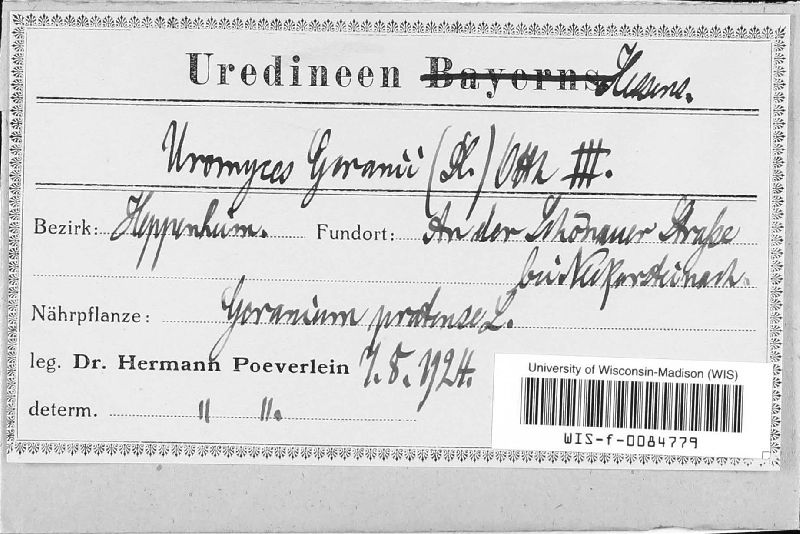 Uredineen Bayerns Hessens.
Uromyces Geranii (DC.) Otth III.
Bezirk: Heppenheim. Fundort: An der Schönauer Straße
bei Neckarsteinach.
Nährpflanze: Geranium pratense L.
leg. Dr. Hermann Poeverlein 7.8.1924.
determ. " ".
University of Wisconsin-Madison (WIS)
WIS-f-0084779